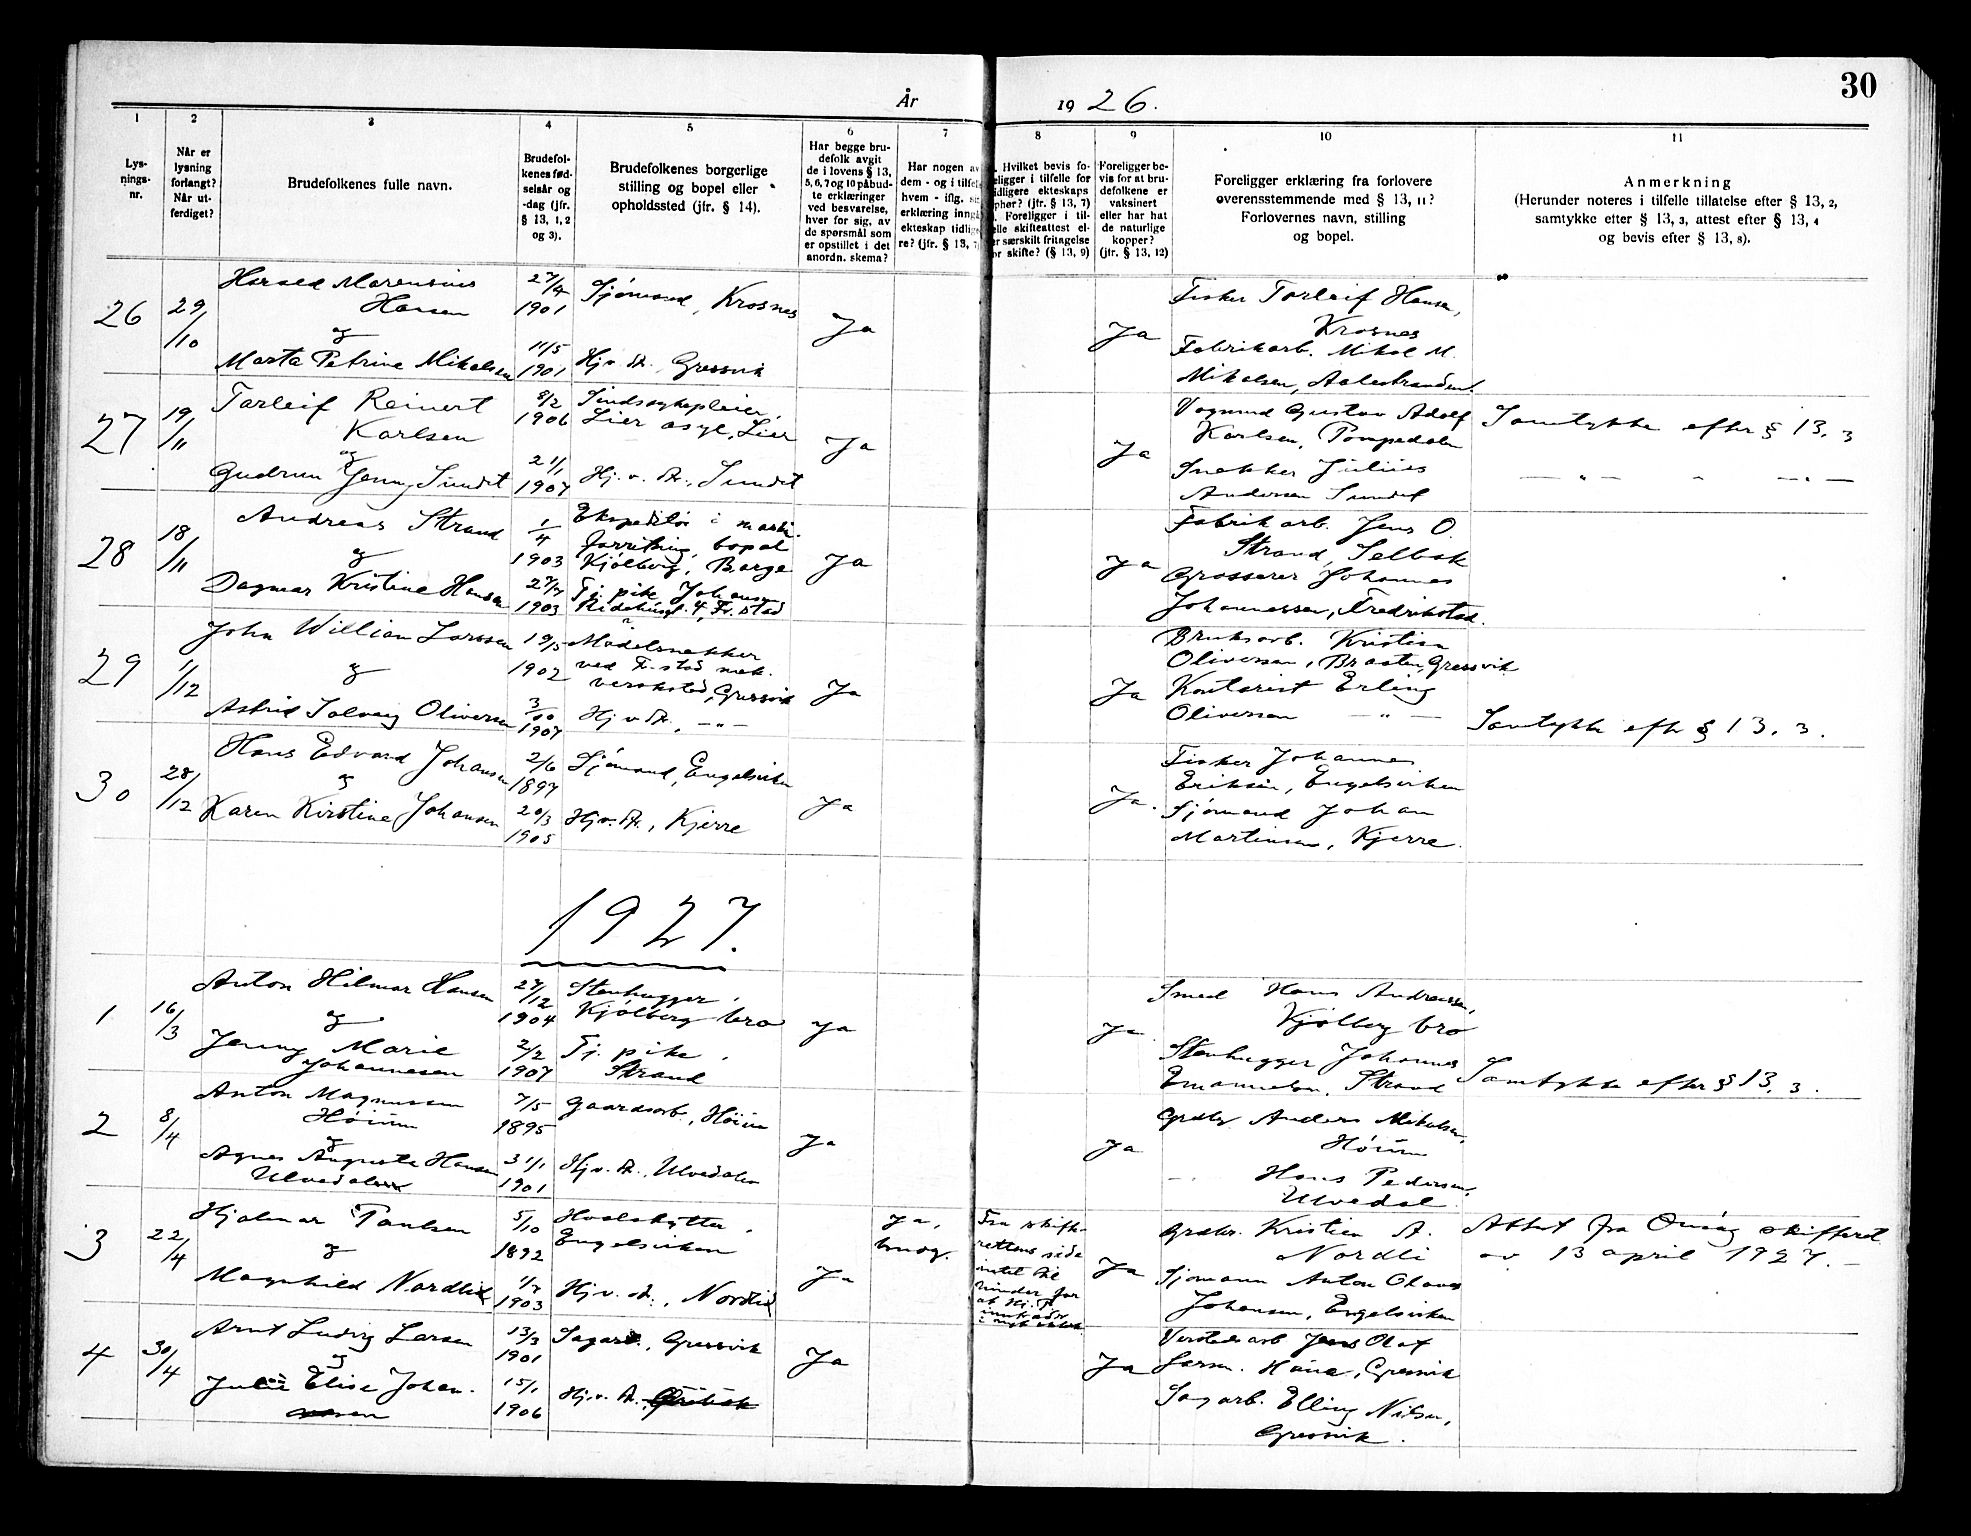 30
År 1926.
1 2 3 4 5 6 7 8 9 10 11
Lys-
nings-
nr.
Når er
lysning
forlangt?
Når ut-
ferdiget?
Brudefolkenes fulle navn.
Brudefol-
kenes fød-
selsår og
-dag (jfr.
§ 13, 1, 2
og 3).
Brudefolkenes borgerlige
stilling og bopel eller
opholdssted (jfr. § 14).
Har begge bru-
defolk avgit
de i lovens § 13,
5, 6, 7 og 10 påbud-
te erklæringer
ved besvarelse,
hver for sig, av
de spørsmål som
er opstillet i det
anordn. skema?
Har nogen av
dem - og i tilfelle
hvem - iflg.
erklæring inngå
ekteskap tidlige
re? (jfr. § 13, 7
Hvilket bevis fo-
eligger i tilfelle for
idligere ekteskaps
phør? (jfr. § 13, 7)
Foreligger i til-
elle skifteattest el-
er særskilt fritagelse
or skifte? (§ 13, 9)
Foreligger be-
vis for at bru-
defolkene er
vaksinert
eller har hat
de naturlige
kopper?
(jfr. § 13, 12)
Foreligger erklæring fra forlovere
overensstemmende med § 13, 11?
Forlovernes navn, stilling
og bopel.
Anmerkning
(Herunder noteres i tilfelle tillatelse efter § 13, 2,
samtykke efter § 13, 3, attest efter § 13, 4
og bevis efter § 13, 8).
26
29/10
Harald Marensius
Hansen
og
Marta Petrine Mikalsen
27/4
1901
11/5
1901
Sjømand, Krosnes
Hj. v. A., Gressvik
Ja
Ja
Fisker Torleif Hansen,
Krosnes
Fabrikarb. Mikal M.
Mikalsen, Aalestranden.
27
19/11
Torleif Reinert
Karlsen
og
Gudrun Jenny Sundet
8/2
1906
21/1
1907
Sindssykepleier,
Lier asyl, Lier
Hj. v. A., Sundet
Ja
Ja
Vognmd Gustav Adolf
Karlsen, Pompedalen
Snekker Julius
Andersen Sundet
Samtykke efter § 13, 3
— " — " — " —
28
18/11
Andreas Strand
og
Dagmar Kristine Hansen
1/4
1903
1903
Ekspeditør i
forretning, bopæl
Kjølberg, Borge
Tj. pike
4, Fr.stad
Ja
Ja
Fabrikarb. Jens O.
Strand, Selbak
Grosserer Johannes
Johannessen, Fredrikstad.
29
1/12
John William Larssen
og
Astrid Solveig Oliversen
19/5
1902
3/10
1907
Modelsnekker
ved F.stad mek.
verksted, Gressvik
Hj v A., — " —
Ja
Ja
Bruksarb. Kristian
Oliversen, Braaten, Gressvik
Kontorist Erling
Oliversen — " —
Samtykke efter § 13, 3.
30
28/12
Hans Edvard Johansen
og
Karen Kirstine Johansen
2/6
1897
20/3
1905
Sjømand, Engelsviken
Hj. v. A., Kjerre
Ja
Ja.
Fisker Johannes
Eriksen, Engelsviken
Sjømand Johan
Martinsen, Kjerre.
1927.
1
16/3
Anton Hilmar Hansen
og
Jenny Marie
Johannesen
27/12
1904
2/2
1907
Stenhugger,
Kjølberg bro
Tj. pike,
Strand
Ja
Ja.
Smed Hans Andreassen,
Kjølberg bro
Stenhugger Johannes
Emanuelsen, Strand
Samtykke efter § 13, 3.
2
8/4
Anton Magnussen
Høium
og
Agnes Augusta Hansen
Ulvedalen
7/5
1895
31/1
1901
Gaardsarb., Høium
Hj. v. A., Ulvedalen
Ja
Ja
Grdbr. Anders Mikalsen,
Høium
— " — Hans Pedersen,
Ulvedal.
3
22/4
Hjalmar Paulsen
og
Magnhild Nordli
5/10
1892
1903
Hvalskytter,
Engelsviken
Hj. v. A., Nordli
Ja
Ja,
brudg.
Fra skifte-
rettens side
intet til
hinder for
at Hj. P.
Ja
Grdbr. Kristian A.
Nordli
Sjømann Anton Olaves
Johansen, Engelsviken
Attest fra Onsøy skifteret
av 13 april 1927. —
4
30/4
Arnt Ludvig Larsen
og
Julie Elise Johan.
13/3
1901
15/1
1906
Sagarb., Gressvik
Hj. v. A.
Ja
Ja
Verkstedsarb Jens Olaf
Larsen, Gressvik
Sagarb. Elling Nilsen,
Gressvik.